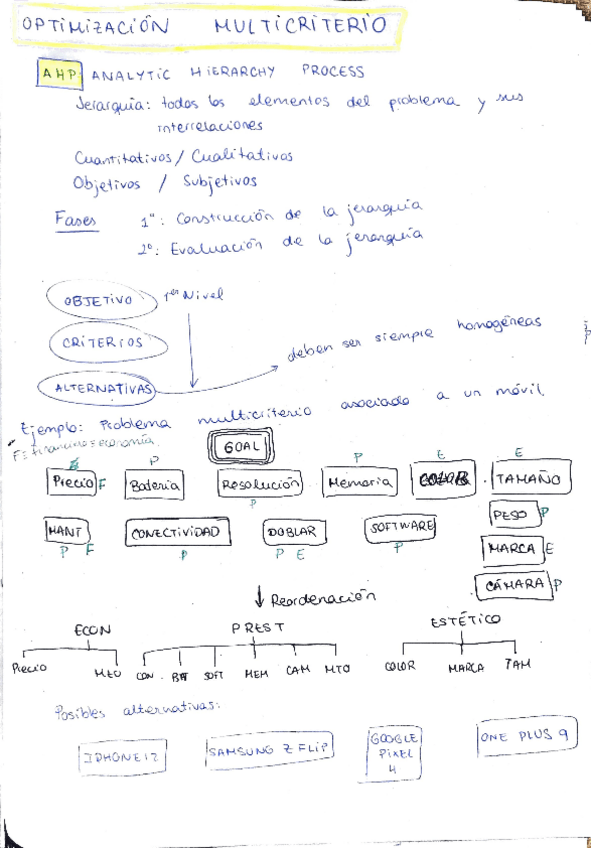 OPTIMIZACIÓN MULTICRITERIO
AHP: ANALYTIC HIERARCHY PROCESS
Jerarquía: todos los elementos del problema y sus
interrelaciones
Cuantitativos / Cualitativos
Objetivos / Subjetivos
Fases 1º: Construcción de la jerarquía
2º: Evaluación de la jerarquía
OBJETIVO 1er Nivel
CRITERIOS
ALTERNATIVAS deben ser siempre homogéneas
Ejemplo: Problema multicriterio asociado a un móvil.
F = financiero = economía
GOAL
P P E E
Precio F Batería Resolución Memoria COLOR TAMAÑO
P
PESO P
MANT CONECTIVIDAD DOBLAR SOFTWARE
P F P P E P
MARCA E
CÁMARA P
↓ Reordenación
ECON PREST ESTÉTICO
Precio CON BAT SOFT MEM CAM MTO COLOR MARCA TAM
Posibles alternativas:
IPHONE 12 SAMSUNG Z FLIP GOOGLE PIXEL 4 ONE PLUS 9